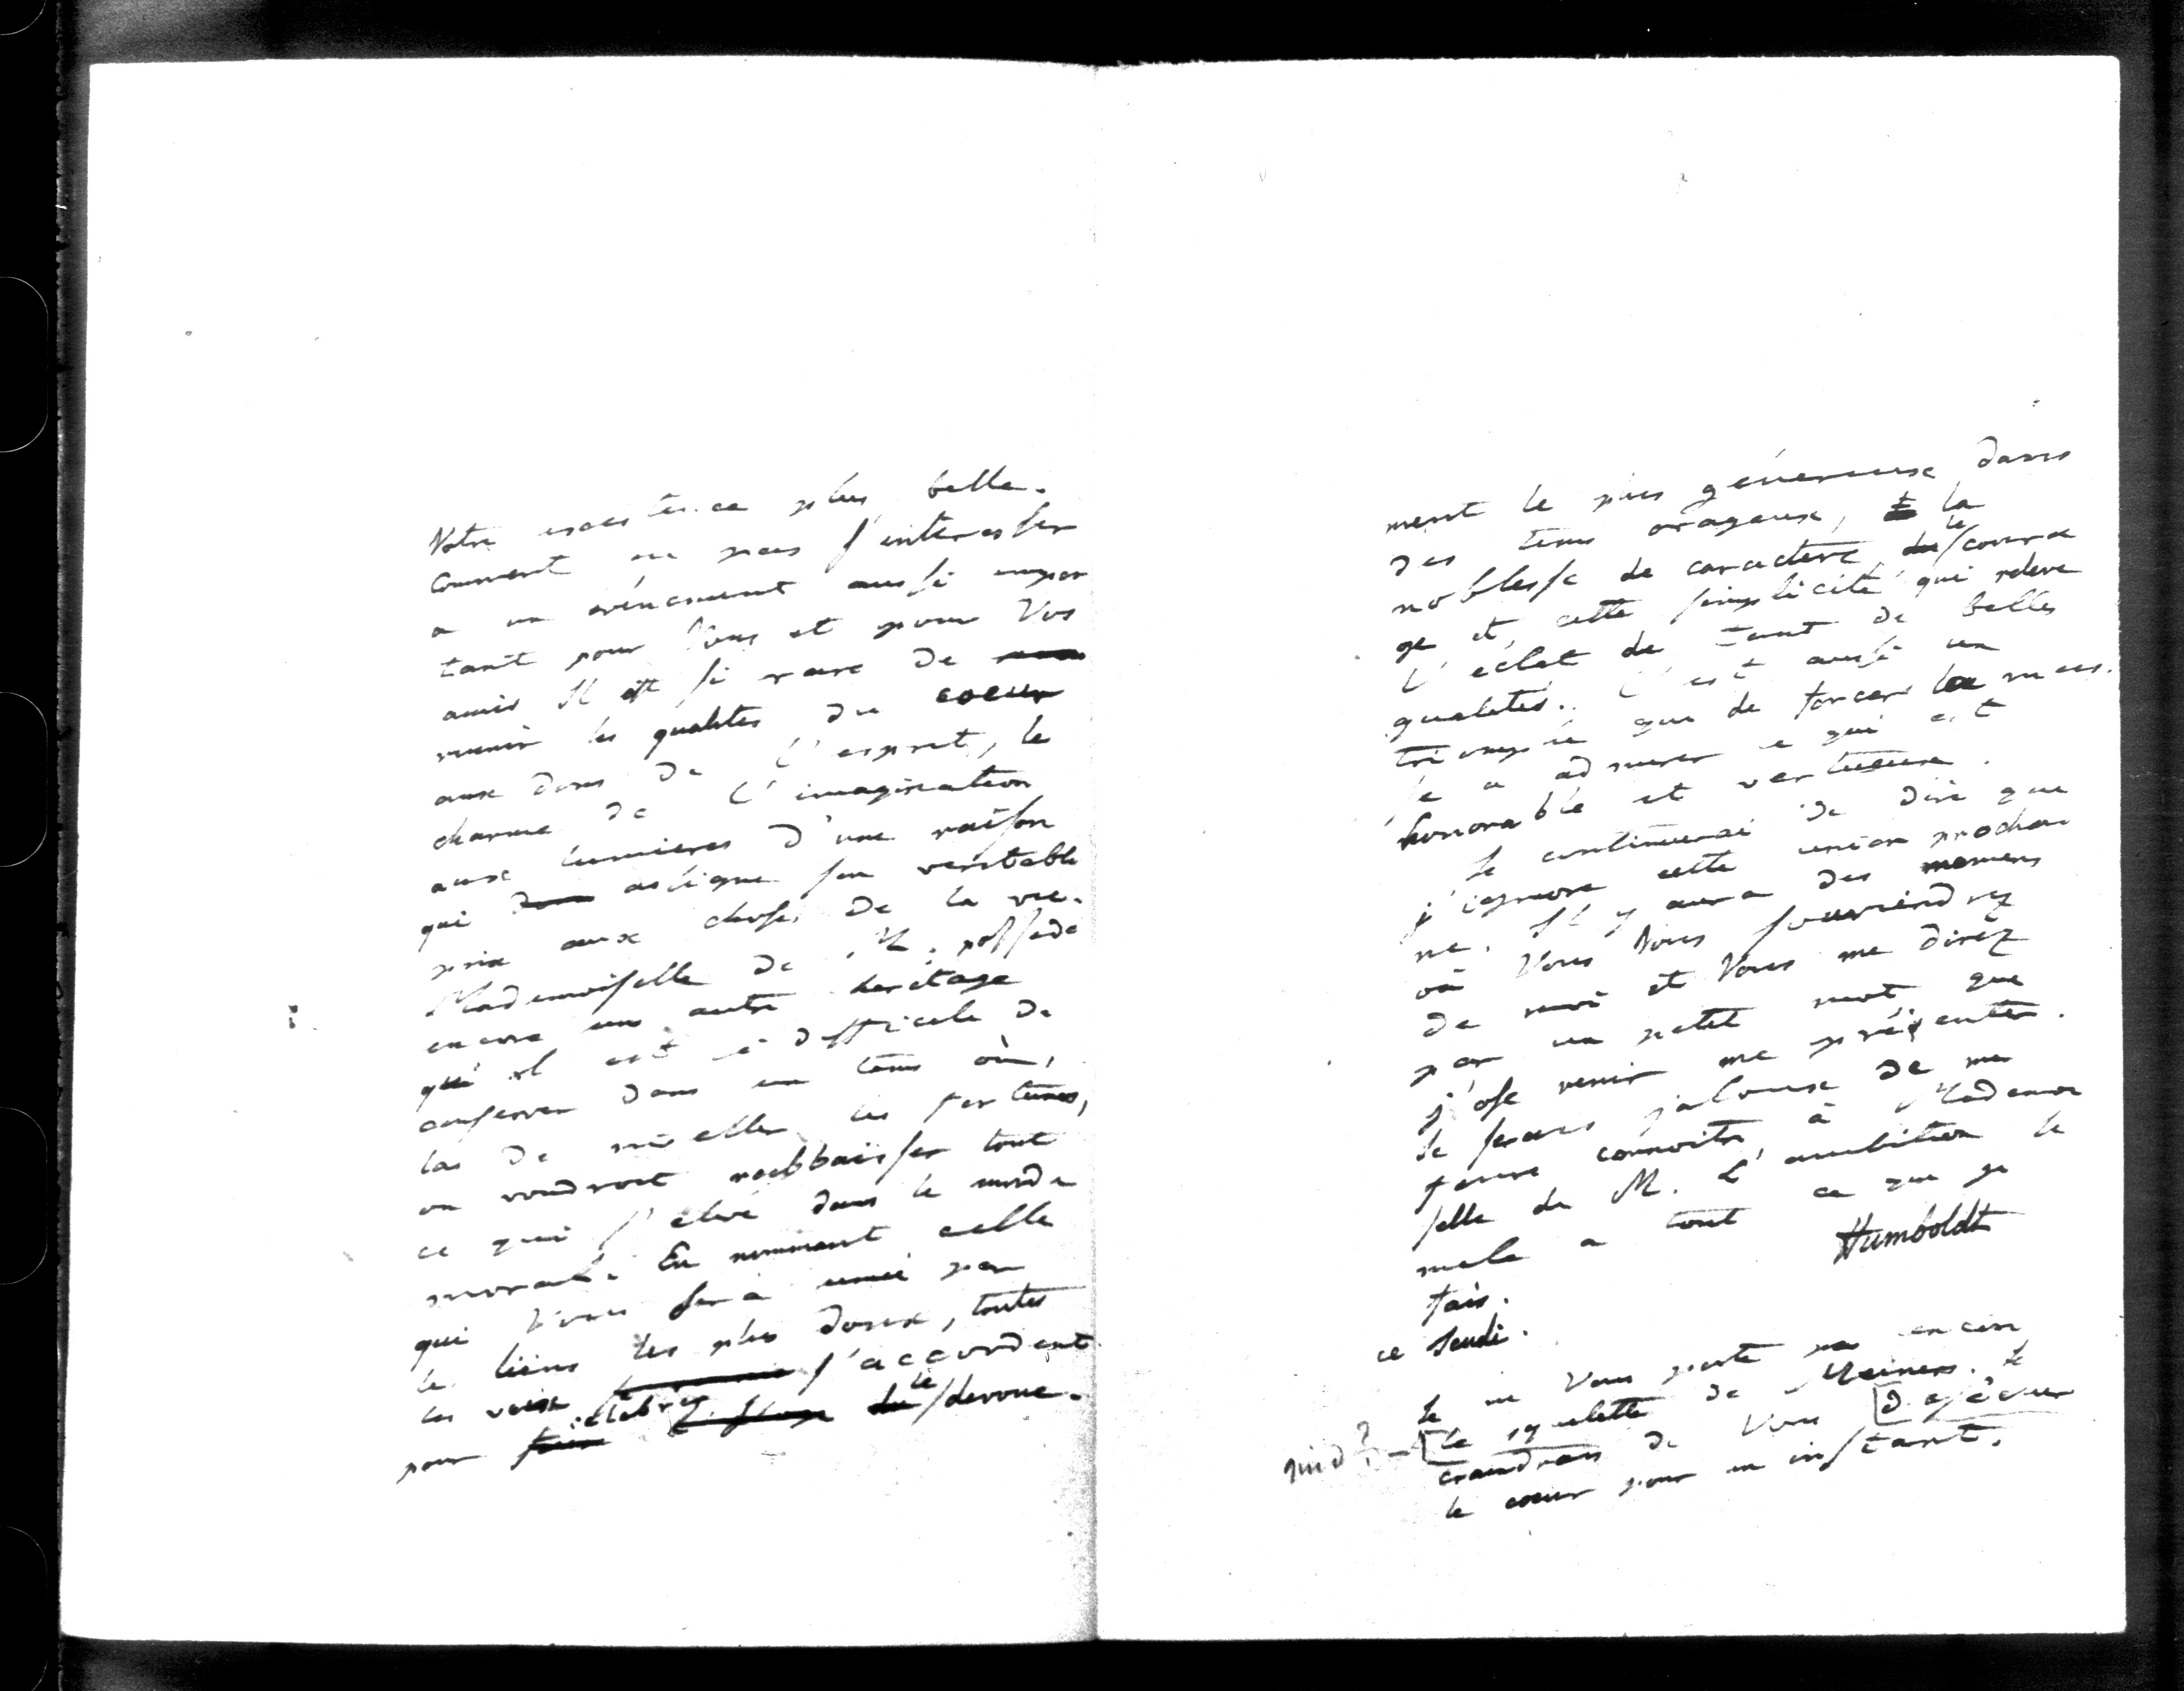 Votre existence plus belle.
Comment ne pas s'interesser
a un evénement aussi impor
tant pour Vous et pour Vos
amis Il est si rare de
reunir les qualites du coeur
aux dons de l'esprit, le
charme de l'imagination
aux lumieres d'une raison
qui assigne son veritable
prix aux choses de la vie.
Mademoiselle de M. possede
encore un autre heritage
qu'il est si difficile de
conserver dans un tems où,
las de niveller les fortunes,
on voudroit rabbaisser tout
ce qui s'élève dans le monde
moral. En nommant celle
qui Vous sera unie par
les liens les plus doux, toutes
les voix s'accordent
pour célébrer le devoue-
ment le plus généreux dans
des tems orageux, la
noblesse de caractere, le coura
ge et cette simplicité qui releve
l'éclat de tant de belles
qualités. C'est aussi un
triomphe que de forcer la mas-
se a admirer ce qui est
honorable et vertueux.
Je continuerai de dire que
j'ignore cette union prochai
ne. Il y aura des momens
où Vous Vous souviendrez
de moi et Vous me direz
par un petit mot que
j'ose venir me présenter.
Je serais jaloux de me
faire connoitre à Mademoi
selle de M. L'ambition se
mele a tout ce que je
fais. Humboldt
ce Jeudi.
Je ne Vous porte pas encore
quid? - [le squelette de Meiners. Je
craindrais de Vous
le coeur pour un instant.